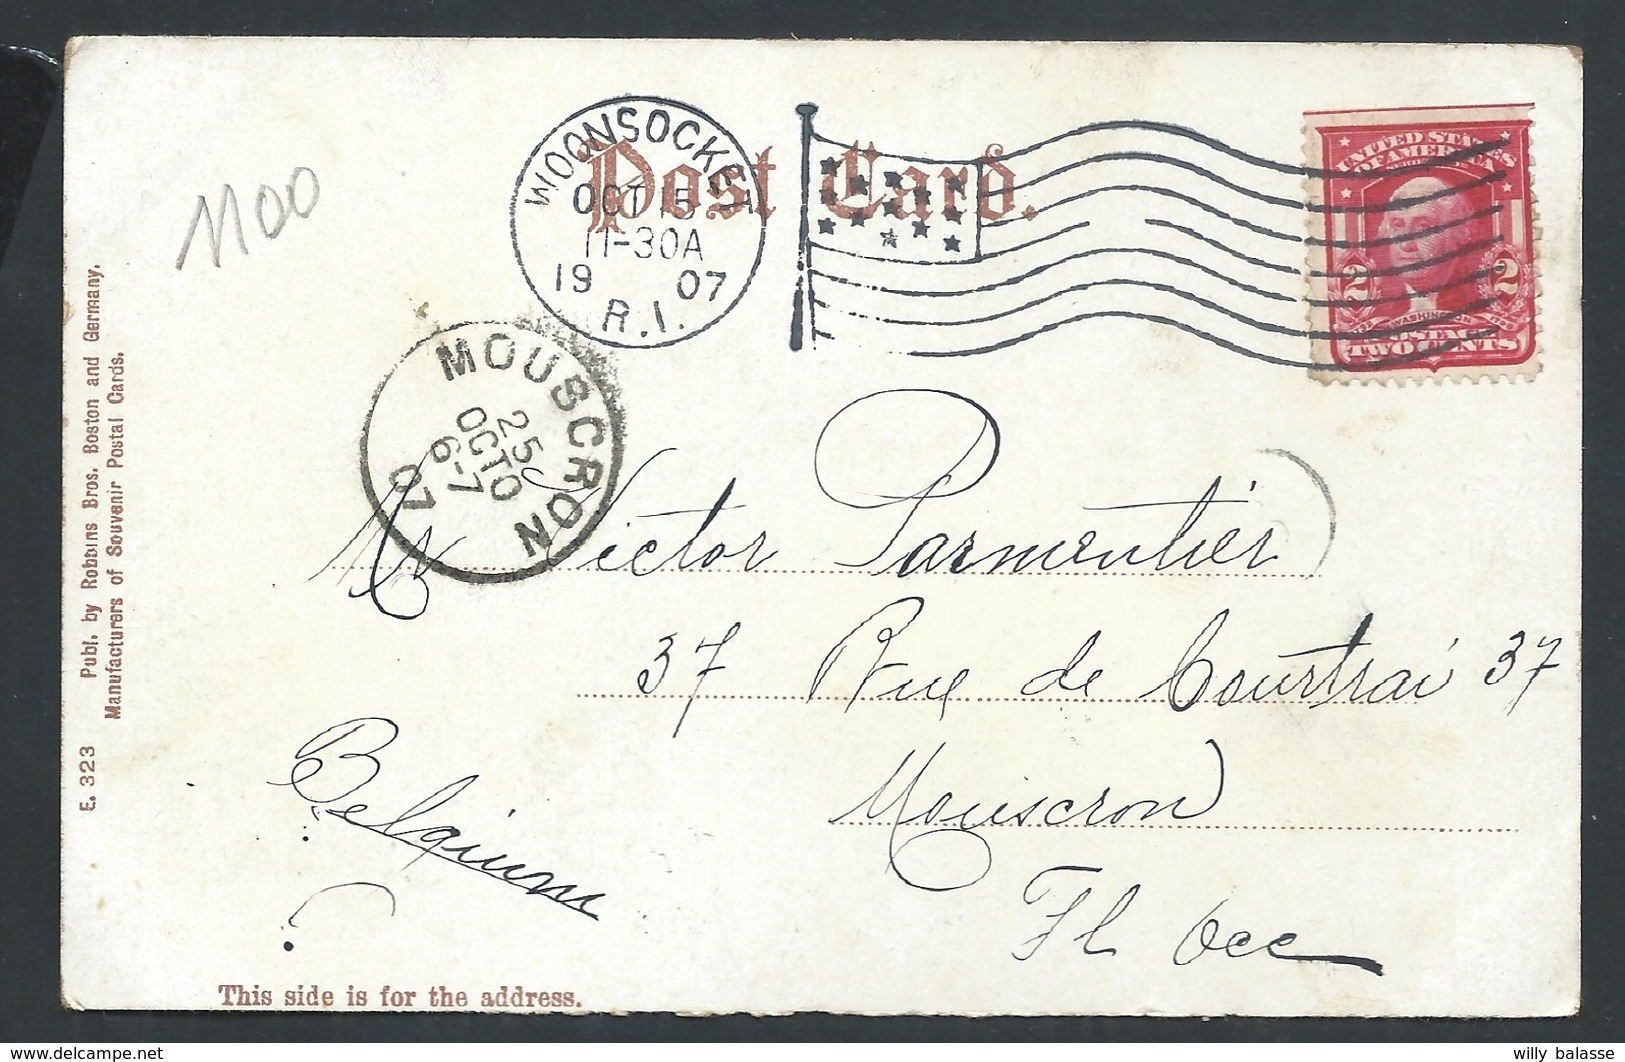 1100
WOONSOCKET
OCT 15
11-30A
19 07
R.I.
Post Card.
UNITED STATES
OF AMERICA
2 2
WASHINGTON
TWO CENTS
MOUSCRON
25
OCTO
6-7
07
Mr Victor Parmentier
37 Rue de Courtrai 37
Mouscron
Fl Occ
Belgium
E. 323 Publ. by Robbins Bros. Boston and Germany.
Manufacturers of Souvenir Postal Cards.
This side is for the address.
willy balasse